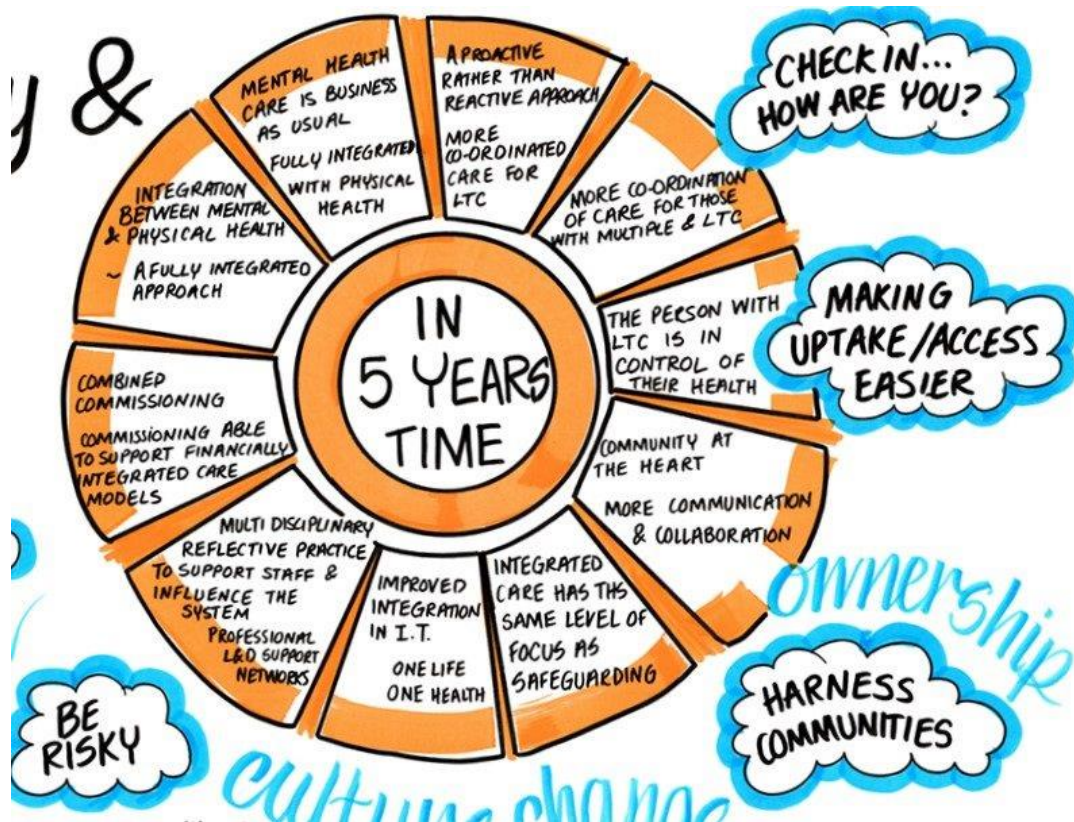 &
MENTAL HEALTH
CARE IS BUSINESS
AS USUAL
FULLY INTEGRATED
WITH PHYSICAL
HEALTH
A PROACTIVE
RATHER THAN
REACTIVE APPROACH
MORE
CO-ORDINATED
CARE FOR
LTC
MORE CO-ORDINATION
OF CARE FOR THOSE
WITH MULTIPLE & LTC
THE PERSON WITH
LTC IS IN
CONTROL OF
THEIR HEALTH
COMMUNITY AT
THE HEART
MORE COMMUNICATION
& COLLABORATION
INTEGRATED
CARE HAS THS
SAME LEVEL OF
FOCUS AS
SAFEGUARDING
IMPROVED
INTEGRATION
IN I.T.
ONE LIFE
ONE HEALTH
MULTI DISCIPLINARY
REFLECTIVE PRACTICE
TO SUPPORT STAFF &
INFLUENCE THE
SYSTEM
PROFESSIONAL
L&D SUPPORT
NETWORKS
COMBINED
COMMISSIONING
COMMISSIONING ABLE
TO SUPPORT FINANCIALLY
INTEGRATED CARE
MODELS
INTEGRATION
BETWEEN MENTAL
& PHYSICAL HEALTH
~ A FULLY INTEGRATED
APPROACH
IN
5 YEARS
TIME
CHECK IN...
HOW ARE YOU?
MAKING
UPTAKE/ACCESS
EASIER
ownership
HARNESS
COMMUNITIES
BE
RISKY
culture change